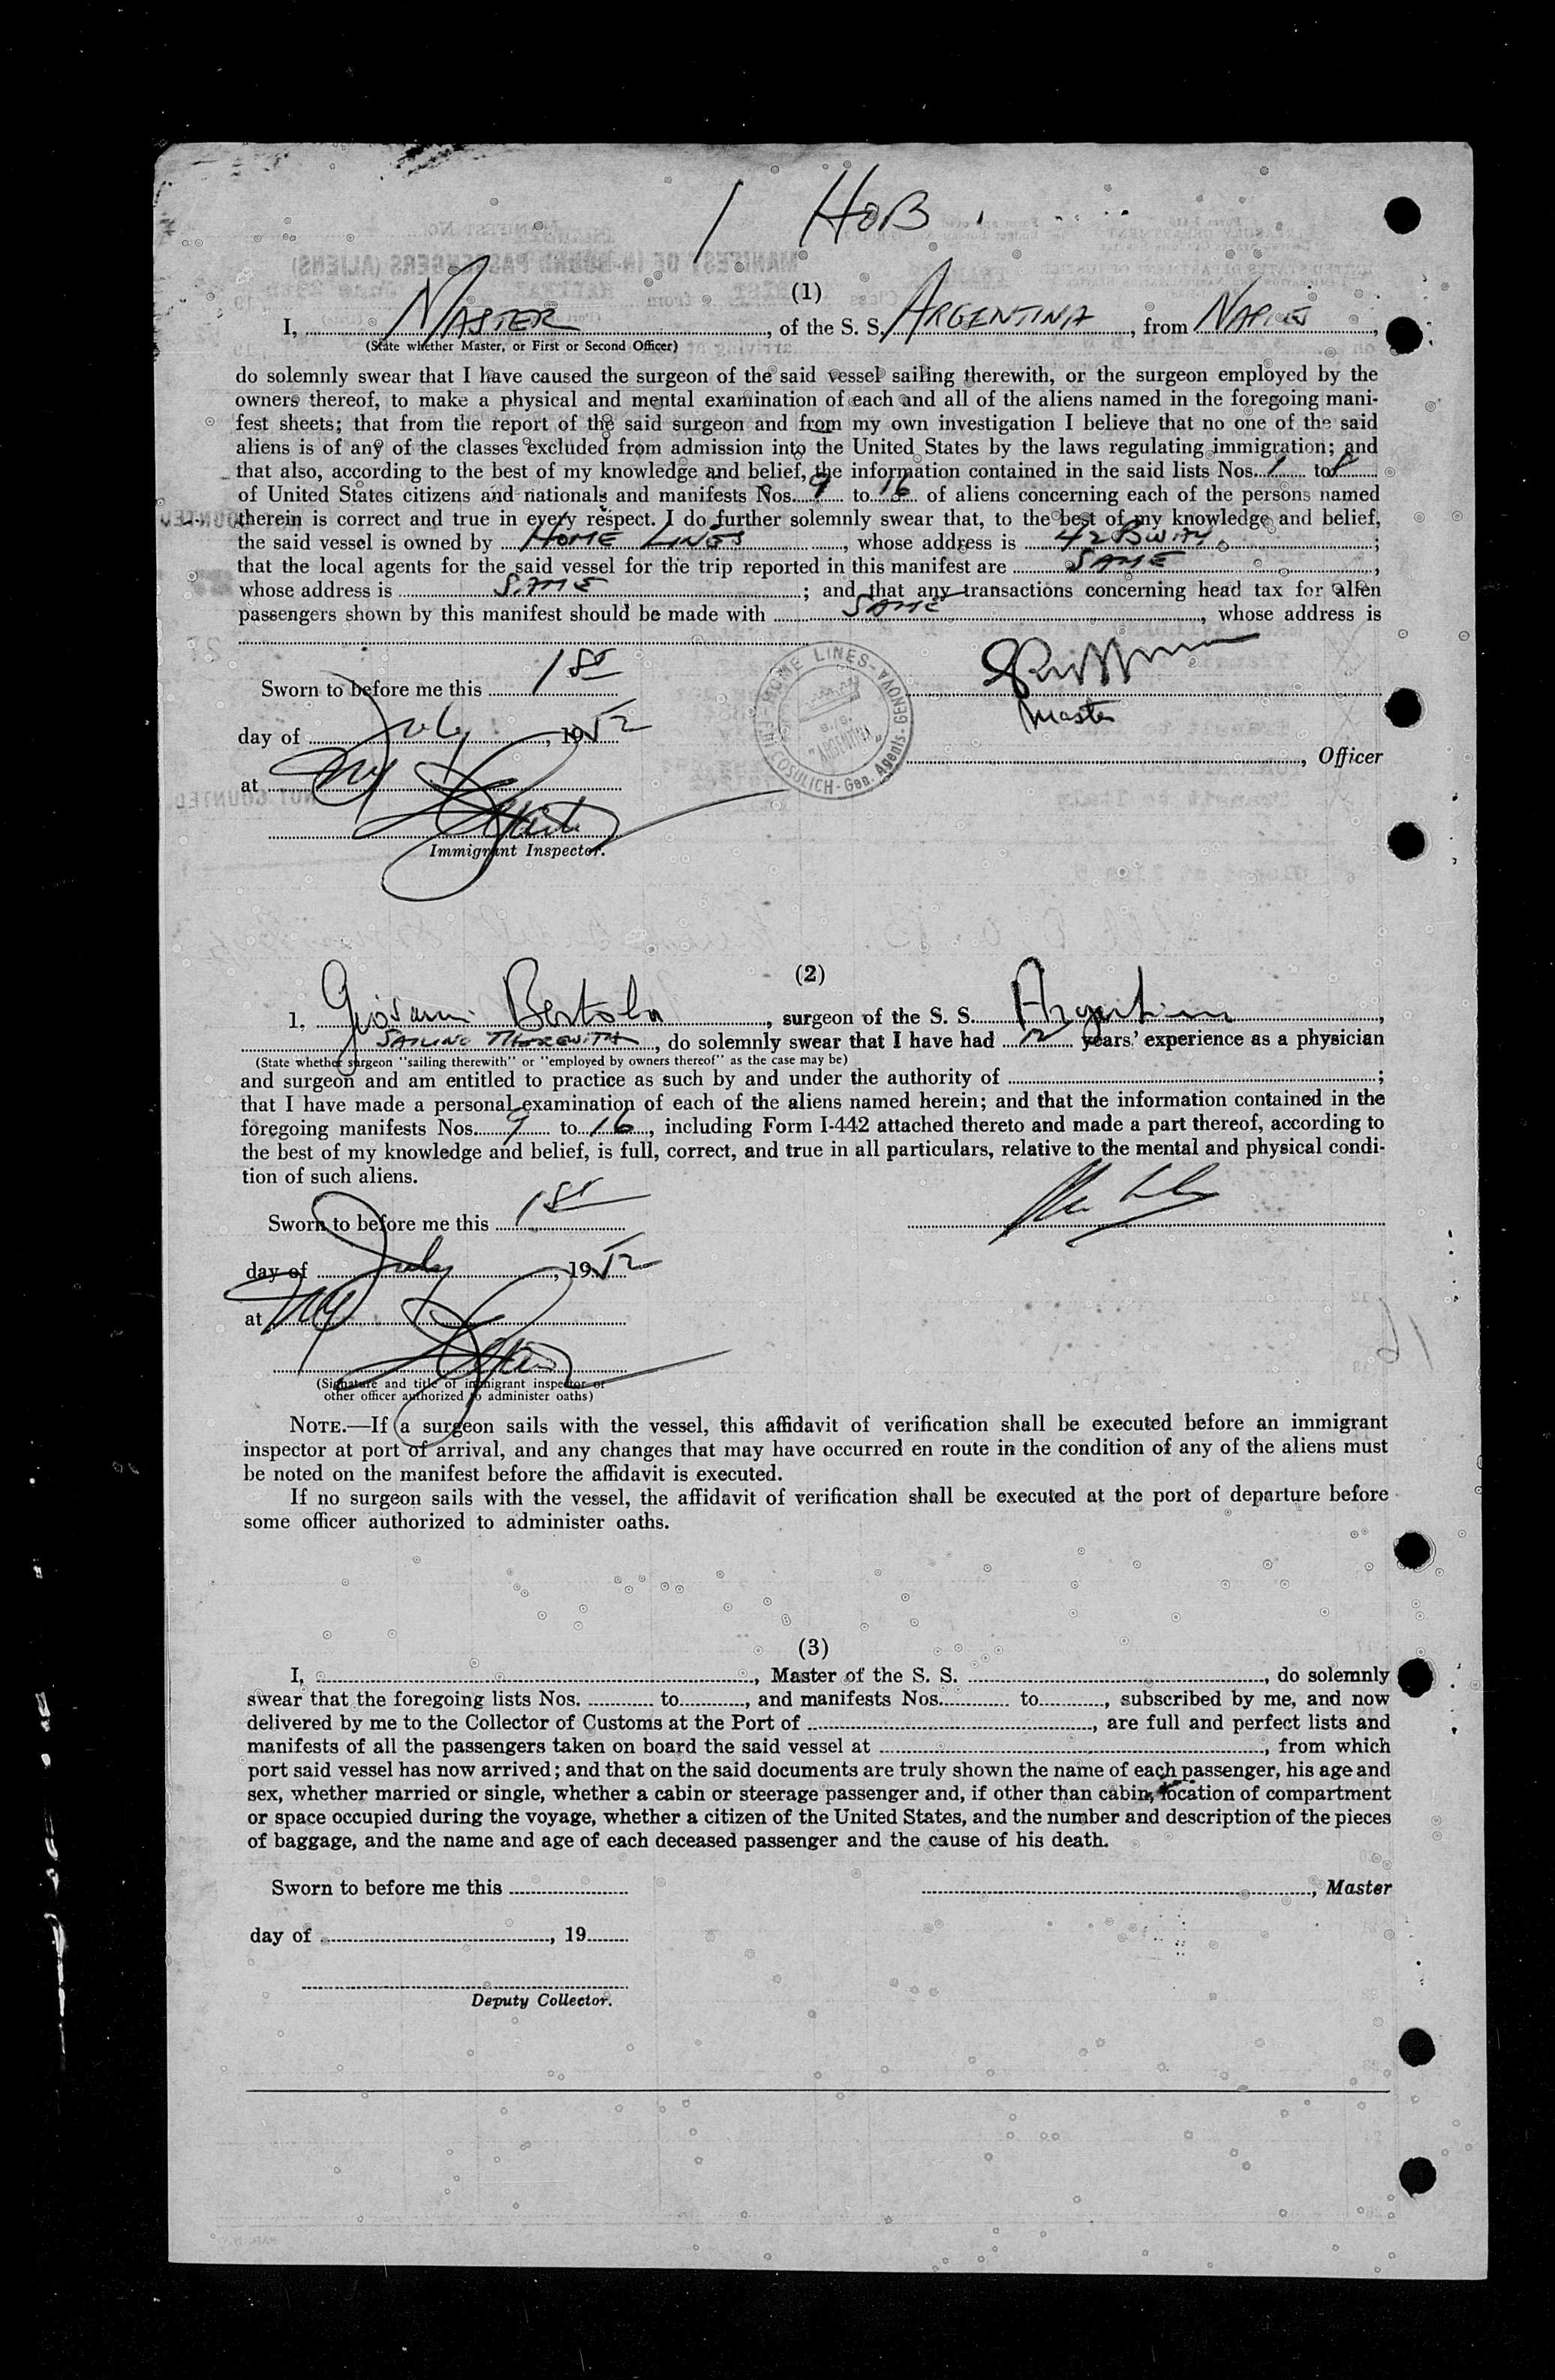 1 HOB
(1)
I, MASTER, of the S. S. ARGENTINA, from NAPLES,
(State whether Master, or First or Second Officer)
do solemnly swear that I have caused the surgeon of the said vessel sailing therewith, or the surgeon employed by the
owners thereof, to make a physical and mental examination of each and all of the aliens named in the foregoing mani-
fest sheets; that from the report of the said surgeon and from my own investigation I believe that no one of the said
aliens is of any of the classes excluded from admission into the United States by the laws regulating immigration; and
that also, according to the best of my knowledge and belief, the information contained in the said lists Nos. 1 to
of United States citizens and nationals and manifests Nos. 9 to 16 of aliens concerning each of the persons named
therein is correct and true in every respect. I do further solemnly swear that, to the best of my knowledge and belief,
the said vessel is owned by HOME LINES, whose address is 42 BWAY.;
that the local agents for the said vessel for the trip reported in this manifest are SAME,
whose address is SAME; and that any transactions concerning head tax for alien
passengers shown by this manifest should be made with SAME, whose address is
HOME LINES - GENOVA
FRI COSULICH - Gen. Agents.
S/S. "ARGENTINA"
Sworn to before me this 1st
Master
day of July, 1952
, Officer
at NY
Immigrant Inspector.
(2)
I, Giovanni Bertola, surgeon of the S. S. Argentina,
SAILING THEREWITH, do solemnly swear that I have had 12 years' experience as a physician
(State whether surgeon "sailing therewith" or "employed by owners thereof" as the case may be)
and surgeon and am entitled to practice as such by and under the authority of ;
that I have made a personal examination of each of the aliens named herein; and that the information contained in the
foregoing manifests Nos. 9 to 16, including Form I-442 attached thereto and made a part thereof, according to
the best of my knowledge and belief, is full, correct, and true in all particulars, relative to the mental and physical condi-
tion of such aliens.
Sworn to before me this 1st
day of July, 1952
at NY
(Signature and title of immigrant inspector or
other officer authorized to administer oaths)
NOTE.—If a surgeon sails with the vessel, this affidavit of verification shall be executed before an immigrant
inspector at port of arrival, and any changes that may have occurred en route in the condition of any of the aliens must
be noted on the manifest before the affidavit is executed.
If no surgeon sails with the vessel, the affidavit of verification shall be executed at the port of departure before
some officer authorized to administer oaths.
(3)
I, , Master of the S. S. , do solemnly
swear that the foregoing lists Nos. to , and manifests Nos. to , subscribed by me, and now
delivered by me to the Collector of Customs at the Port of , are full and perfect lists and
manifests of all the passengers taken on board the said vessel at , from which
port said vessel has now arrived; and that on the said documents are truly shown the name of each passenger, his age and
sex, whether married or single, whether a cabin or steerage passenger and, if other than cabin, location of compartment
or space occupied during the voyage, whether a citizen of the United States, and the number and description of the pieces
of baggage, and the name and age of each deceased passenger and the cause of his death.
Sworn to before me this
, Master
day of , 19
Deputy Collector.